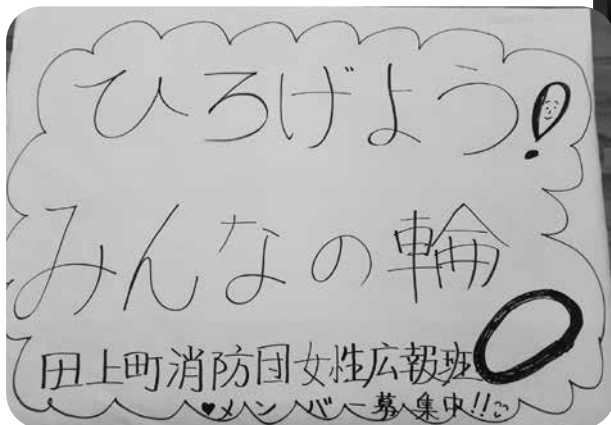 ひろげよう!
みんなの輪
田上町消防団女性広報班
♥メンバー募集中!!